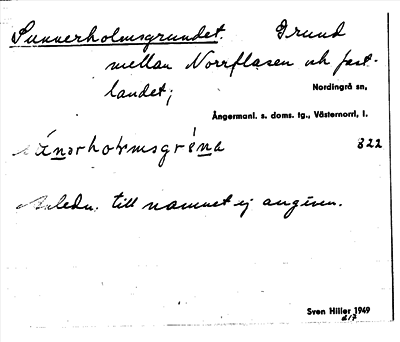 Sunnerholmsgrundet. Grund
mellan Norrflasen och fast-
landet;
Nordingrå sn,
Ångermanl. s. doms. tg., Västernorrl, l.
822
Anledn. till namnet ej angiven.
Sven Hiller 1949